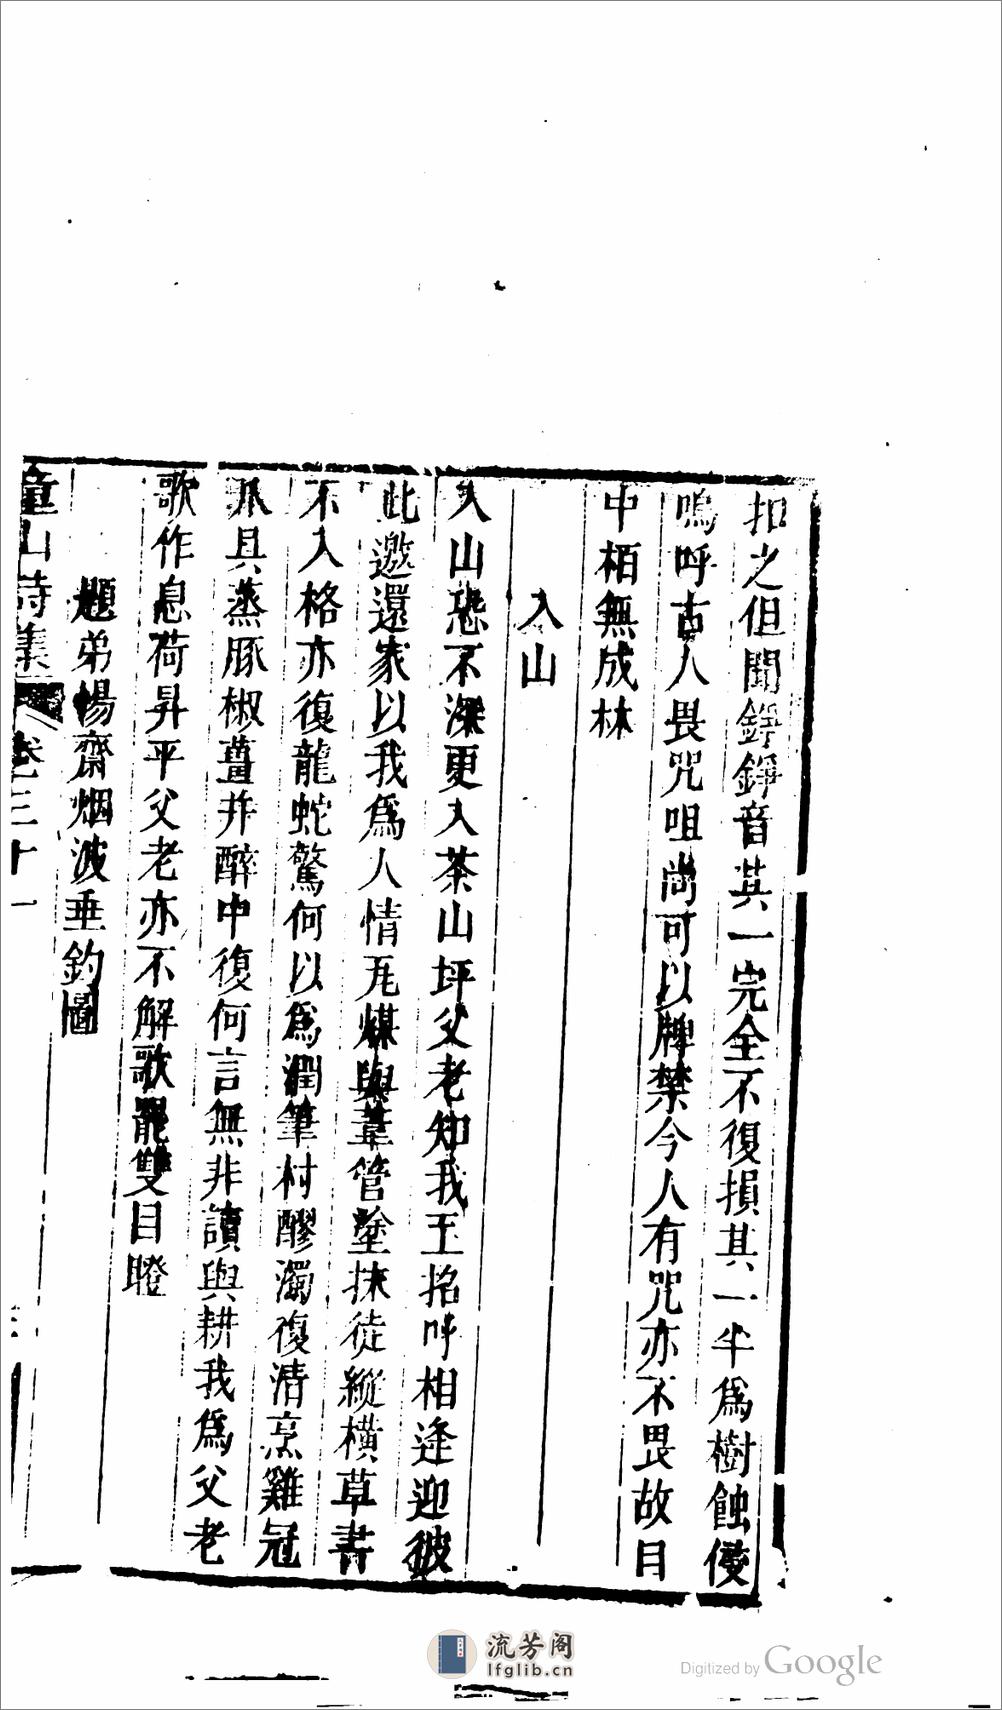 扣之但聞錚錚音其一完全不復損其一半爲樹蝕侵
嗚呼古人畏咒咀尚可以牌禁今人有咒亦不畏故目
中栢無成林
入山
入山恐不深更入茶山坪父老知我至招呼相逢迎彼
此邀還家以我爲人情瓦煤與葦管塗抹徒縱横草書
不入格亦復龍蛇驚何以爲潤筆村醪濁復清烹雞冠
爪具蒸豚椒薑并醉中復何言無非讀與耕我爲父老
歌作息荷昇平父老亦不解歌罷雙目瞪
題弟惕齋烟波垂釣圖
童山詩集 卷三十一
流芳阁
lfglib.cn
Digitized by Google